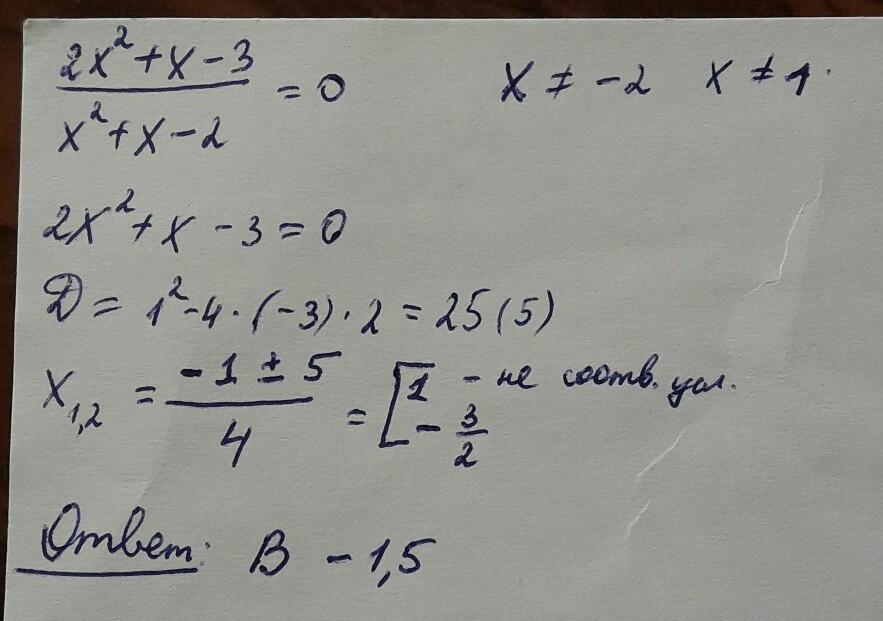 (2x² + x - 3) / (x² + x - 2) = 0 x ≠ -2 x ≠ 1.
2x² + x - 3 = 0
D = 1² - 4 · (-3) · 2 = 25 (5)
x₁,₂ = (-1 ± 5) / 4 = [1 - не соотв. усл.
- 3/2
Ответ: В - 1,5